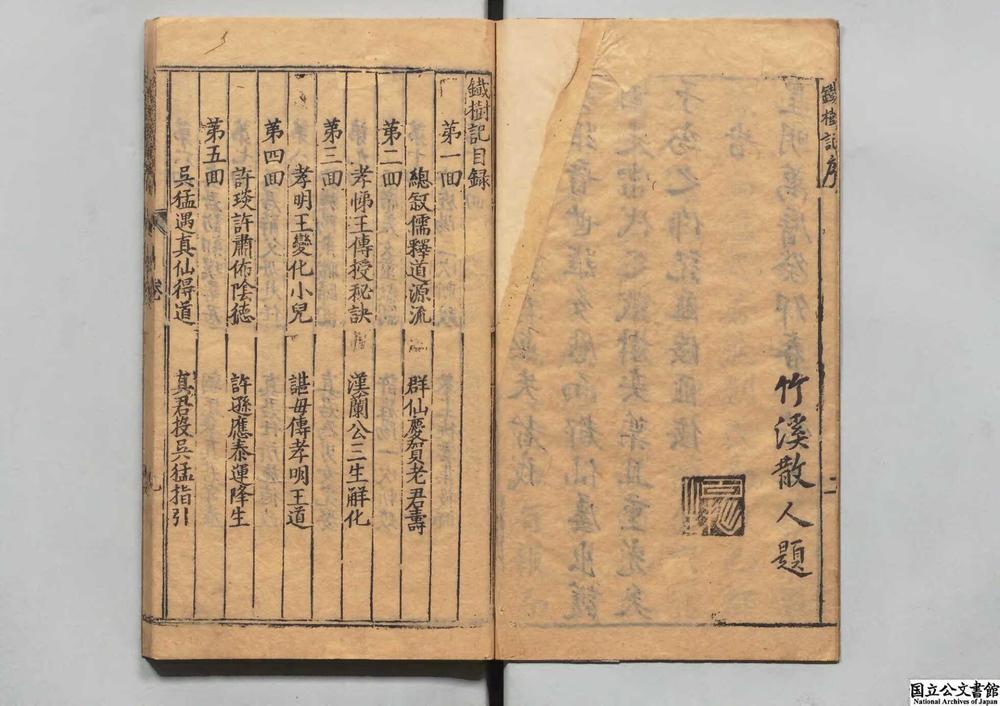 鐵樹記序
竹溪散人題
鐵樹記目錄
第一囬
總敘儒釋道源流 群仙慶賀老君壽
第二囬
孝悌王傳授秘訣 漢蘭公三生觧化
第三囬
孝明王變化小兒 諶母傳孝明王道
第四囬
許琰許肅佈陰德 許遜應泰運降生
第五囬
吳猛遇真仙得道 真君投吳猛指引
国立公文書館
National Archives of Japan